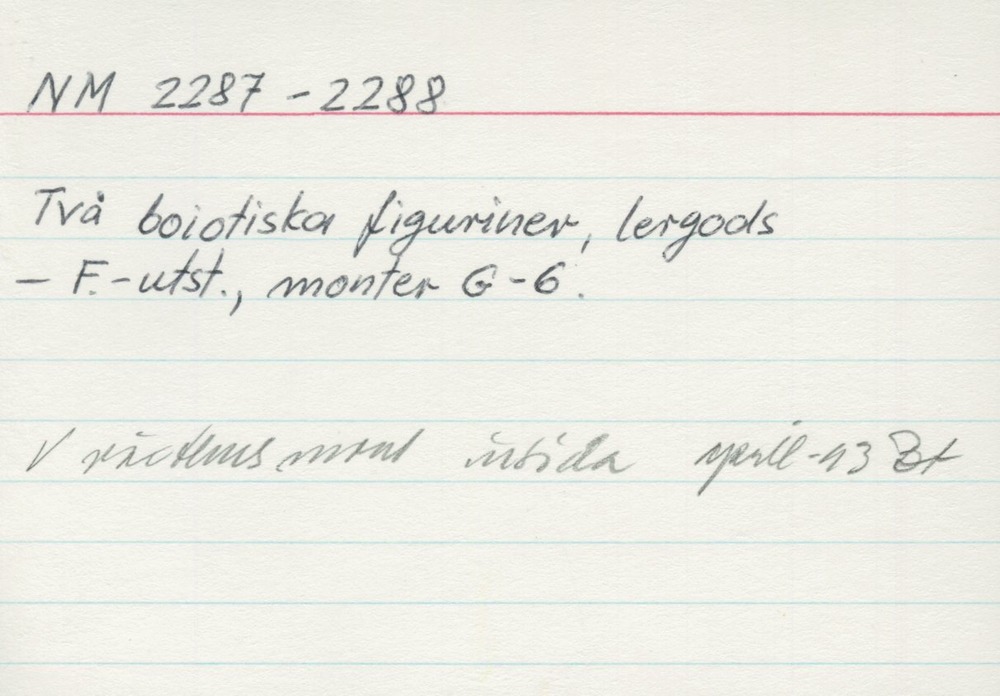 NM 2287 - 2288
Två boiotiska figuriner, lergods
– F.-utst., monter G-6.
insida april -93